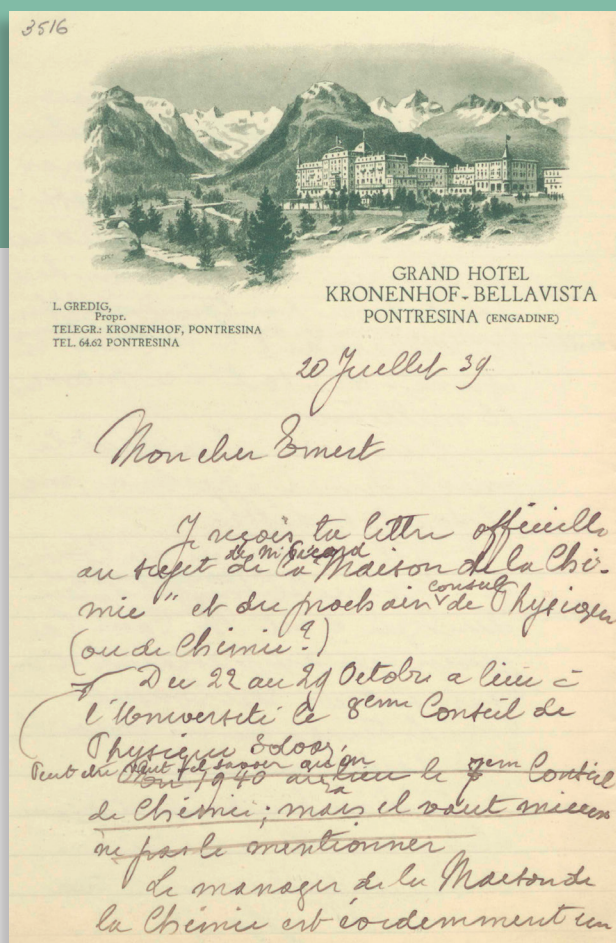 3516
L. GREDIG,
Propr.
TELEGR.: KRONENHOF, PONTRESINA
TEL. 64.62 PONTRESINA
GRAND HOTEL
KRONENHOF-BELLAVISTA
PONTRESINA (ENGADINE)
20 Juillet 39
Mon cher Ernest
Je reçois ta lettre officielle
de M.
au sujet de la "Maison de la Chi-
mie" et du prochain conseil de Physique
(ou de Chimie?)
Du 22 au 29 Octobre a lieu à
l'Université le 8eme Conseil de
Physique Solvay.
Peut être veut il savoir qu'en
1940 aura lieu le 7em Conseil
de Chimie; mais il vaut mieux
ne pas le mentionner
Le manager de la Maison de
la Chimie est évidemment un